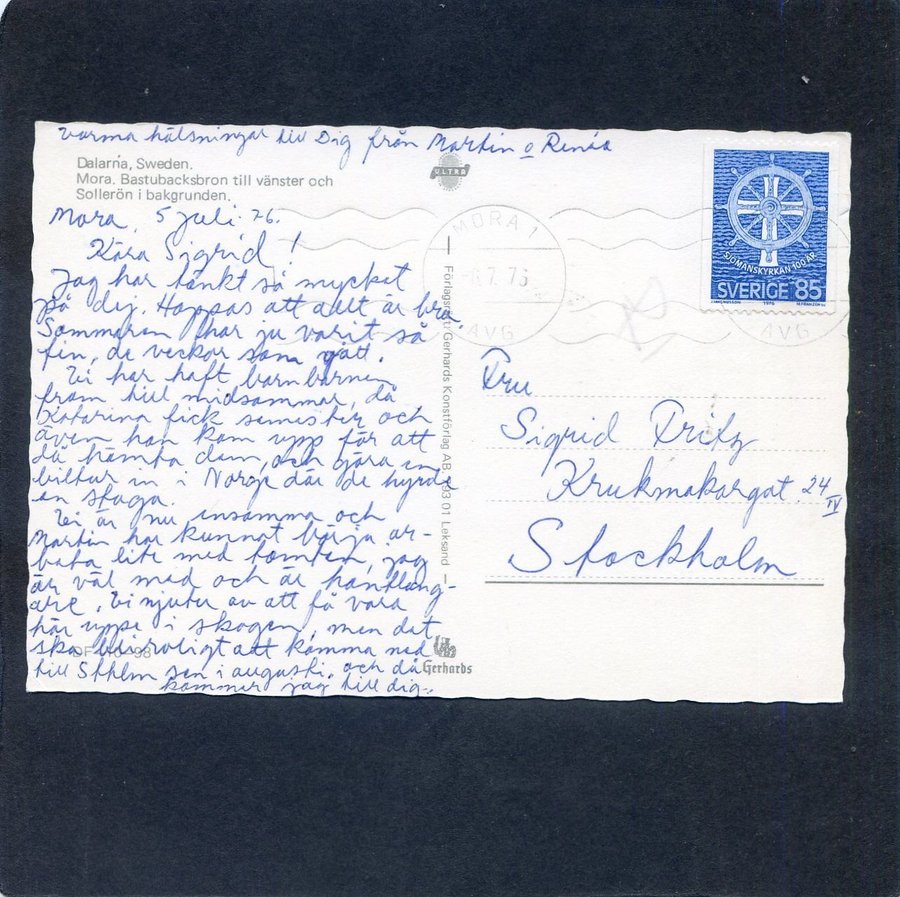 Varma hälsningar till Dig från Martin o Renée
Dalarna, Sweden.
Mora. Bastubacksbron till vänster och
Sollerön i bakgrunden.
ULTRA
Mora, 5 juli -76.
Kära Sigrid!
Jag har tänkt så mycket
på dig. Hoppas att allt är bra.
Sommaren har ju varit så
fin, de veckor som gått.
Vi har haft barnbarnen
fram till midsommar, då
Katarina fick semester och
även han kom upp för att
då hämta dem, och göra en
biltur in i Norge där de hyrde
en stuga.
Vi är nu ensamma och
Martin har kunnat börja ar-
beta lite med tomten, jag
är väl med och är hantlang-
are. Vi njuter av att få vara
här uppe i skogen, men det
ska bli roligt att komma ned
till Sthlm sen i augusti, och då
kommer jag till dig.
MORA 1
7.76
AVG
AVG
Förlagsrätt: Gerhards Konstförlag AB, 793 01 Leksand
Gerhards
SJÖMANSKYRKAN 100 ÅR
SVERIGE 85
1976
Fru
Sigrid Fritz
Krukmakargat. 24 IV
Stockholm